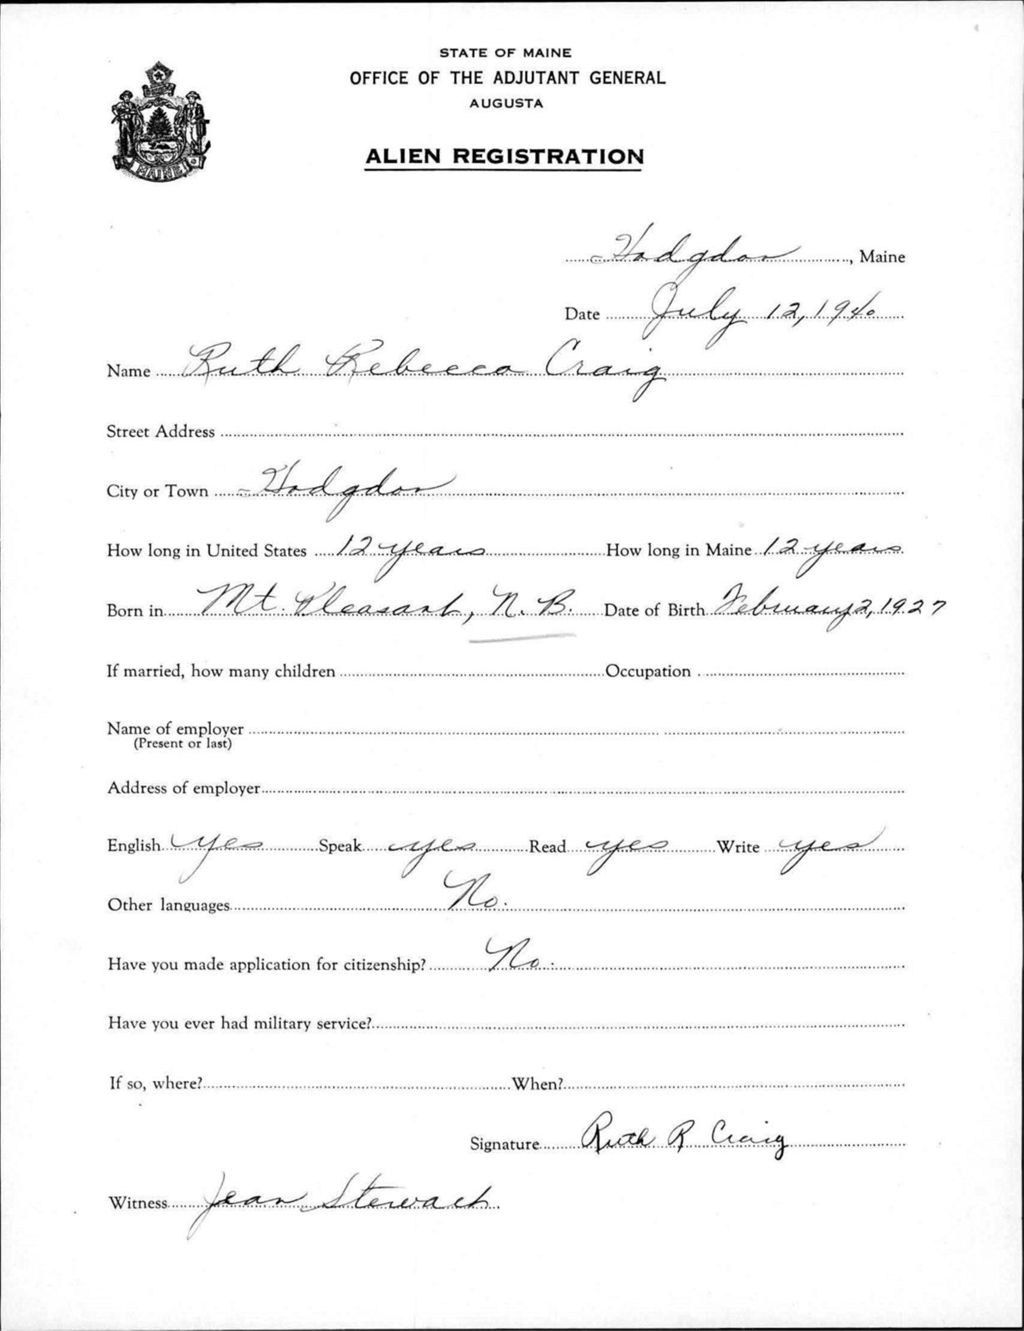 STATE OF MAINE
OFFICE OF THE ADJUTANT GENERAL
AUGUSTA
ALIEN REGISTRATION
MAINE
Hodgdon, Maine
Date July 12, 1940
Name Ruth Rebecca Craig
Street Address
City or Town Hodgdon
How long in United States 12 years How long in Maine 12 years
Born in Mt. Pleasant, N. B. Date of Birth February 2, 1927
If married, how many children Occupation
Name of employer
(Present or last)
Address of employer
English yes Speak yes Read yes Write yes
Other languages No.
Have you made application for citizenship? No.
Have you ever had military service?
If so, where? When?
Signature Ruth R Craig
Witness Jean Stewart